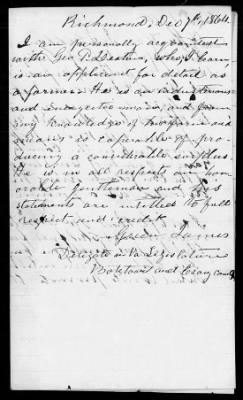 Richmond, Dec 7th, 1864.
I am personally acquainted
with Geo P. who, I learn,
is an applicant for detail as
a farmer. He is an industrious
and energetic man, and from
my knowledge of his farm and
means is capable of pro-
ducing a considerable surplus.
He is in all respects an hon-
orable gentleman and his
statements are intitled to full
respect and credit
Green James
Delegate in Va Legislature
Botetourt and Craig County